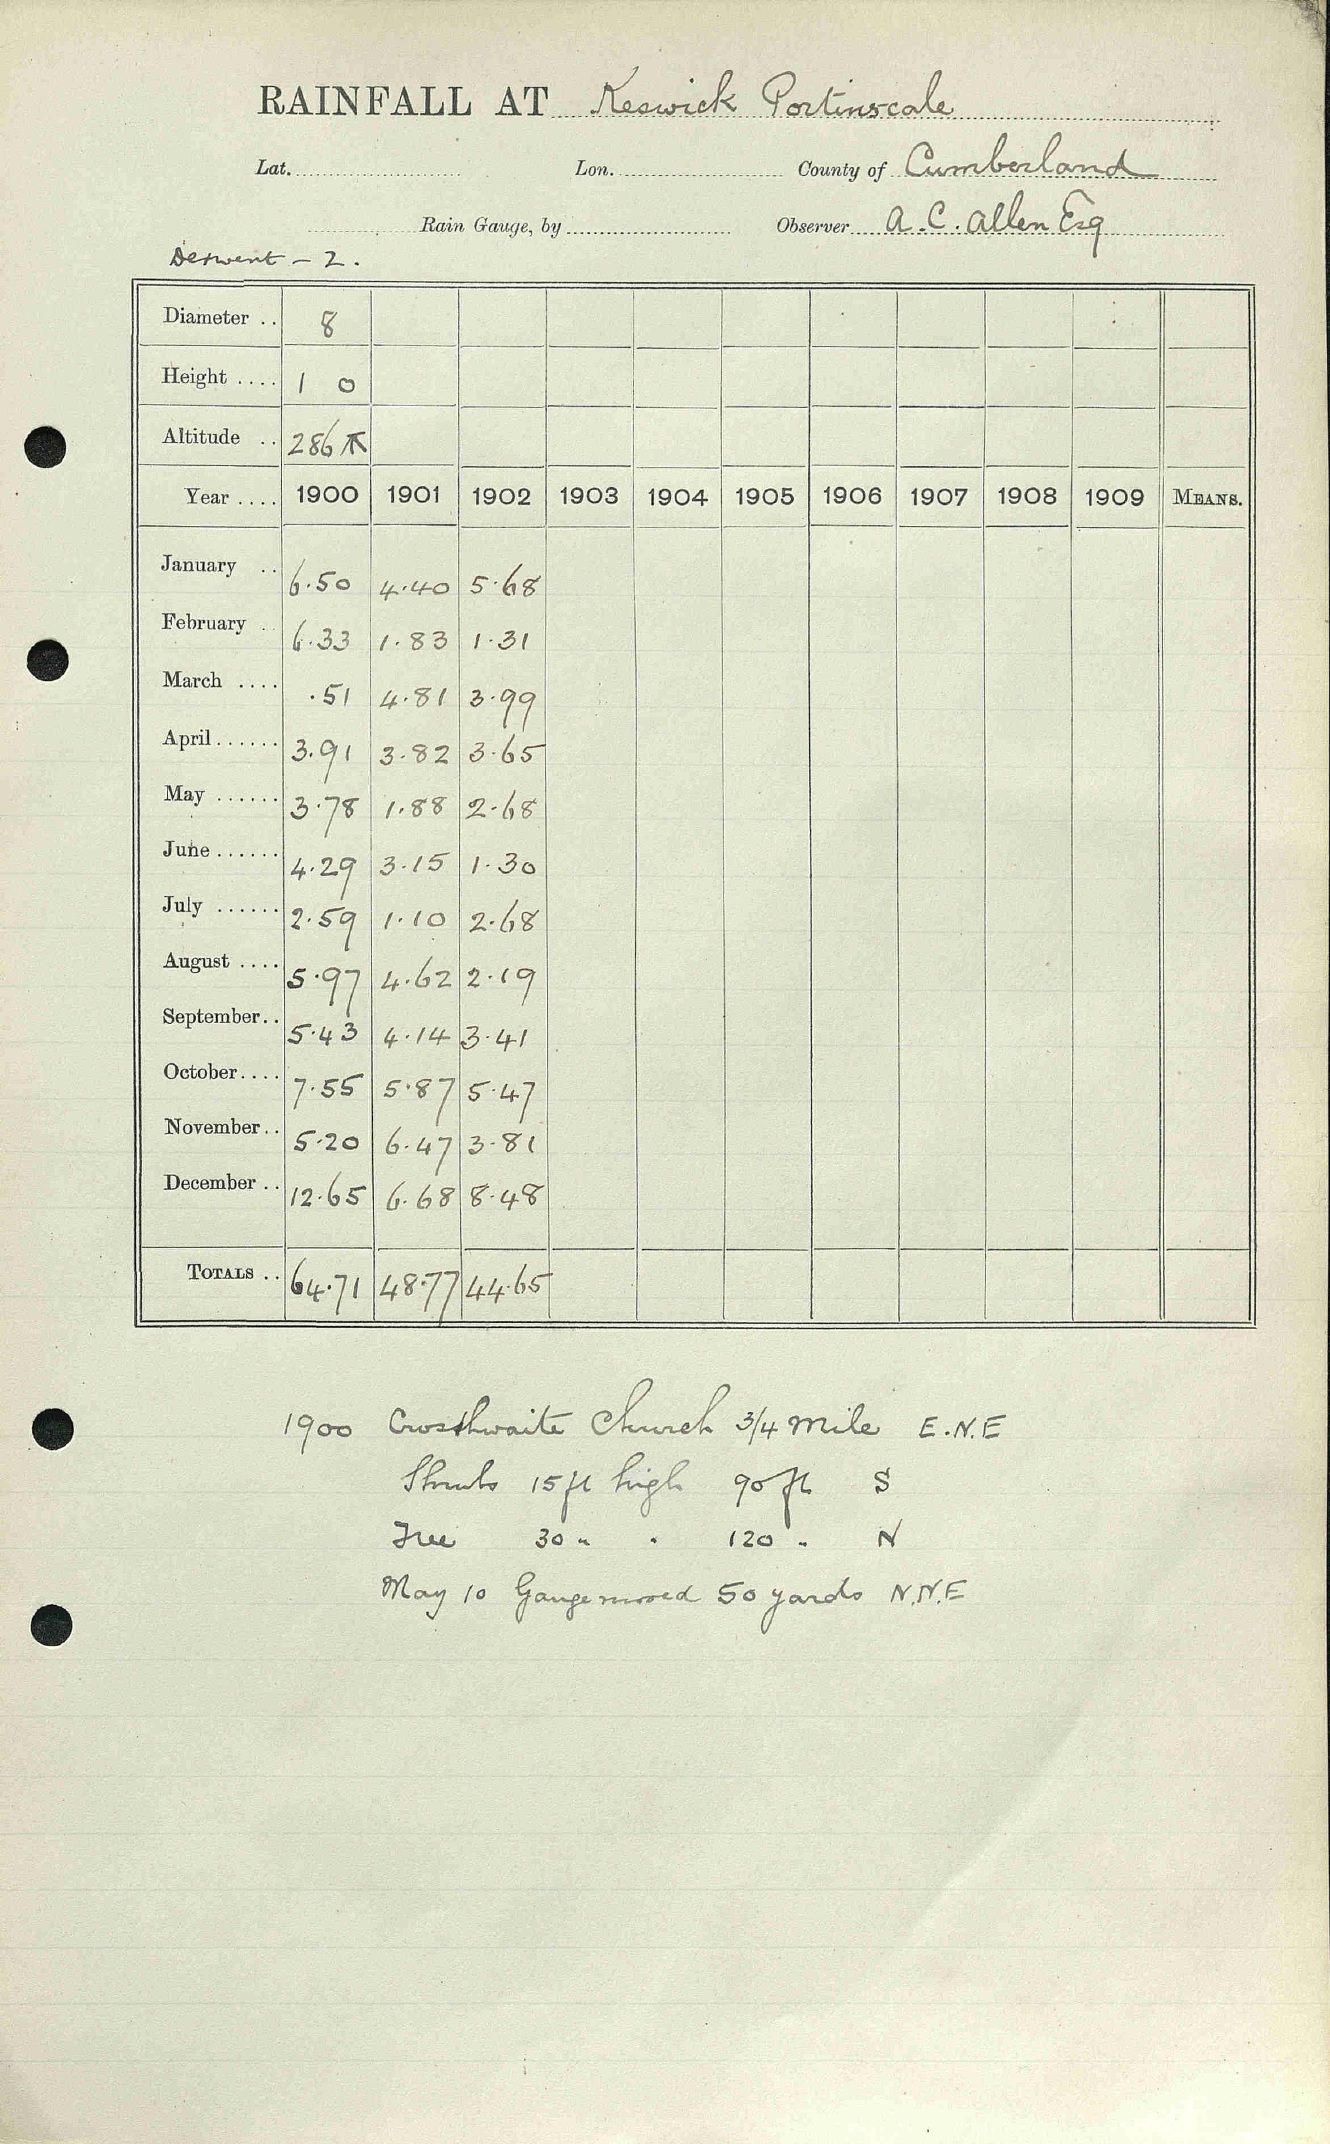 RAINFALL AT Keswick Portinscale
Lat. Lon. County of Cumberland
Rain Gauge, by Observer A. C. Allen Esq
Derwent - 2.
Diameter .. 8
Height .... 1 0
Altitude .. 286
Year .... 1900 1901 1902 1903 1904 1905 1906 1907 1908 1909 MEANS.
January .. 6.50 4.40 5.68
February .. 6.33 1.83 1.31
March .... .51 4.81 3.99
April ...... 3.91 3.82 3.65
May ...... 3.78 1.88 2.68
June ...... 4.29 3.15 1.30
July ...... 2.59 1.10 2.68
August .... 5.97 4.62 2.19
September.. 5.43 4.14 3.41
October.... 7.55 5.87 5.47
November.. 5.20 6.47 3.81
December .. 12.65 6.68 8.48
TOTALS .. 64.71 48.77 44.65
1900 Crosthwaite Church 3/4 Mile E.N.E
Shrubs 15 ft high 90 ft S
Tree 30 " " 120 " N
May 10 Gauge moved 50 yards N.N.E